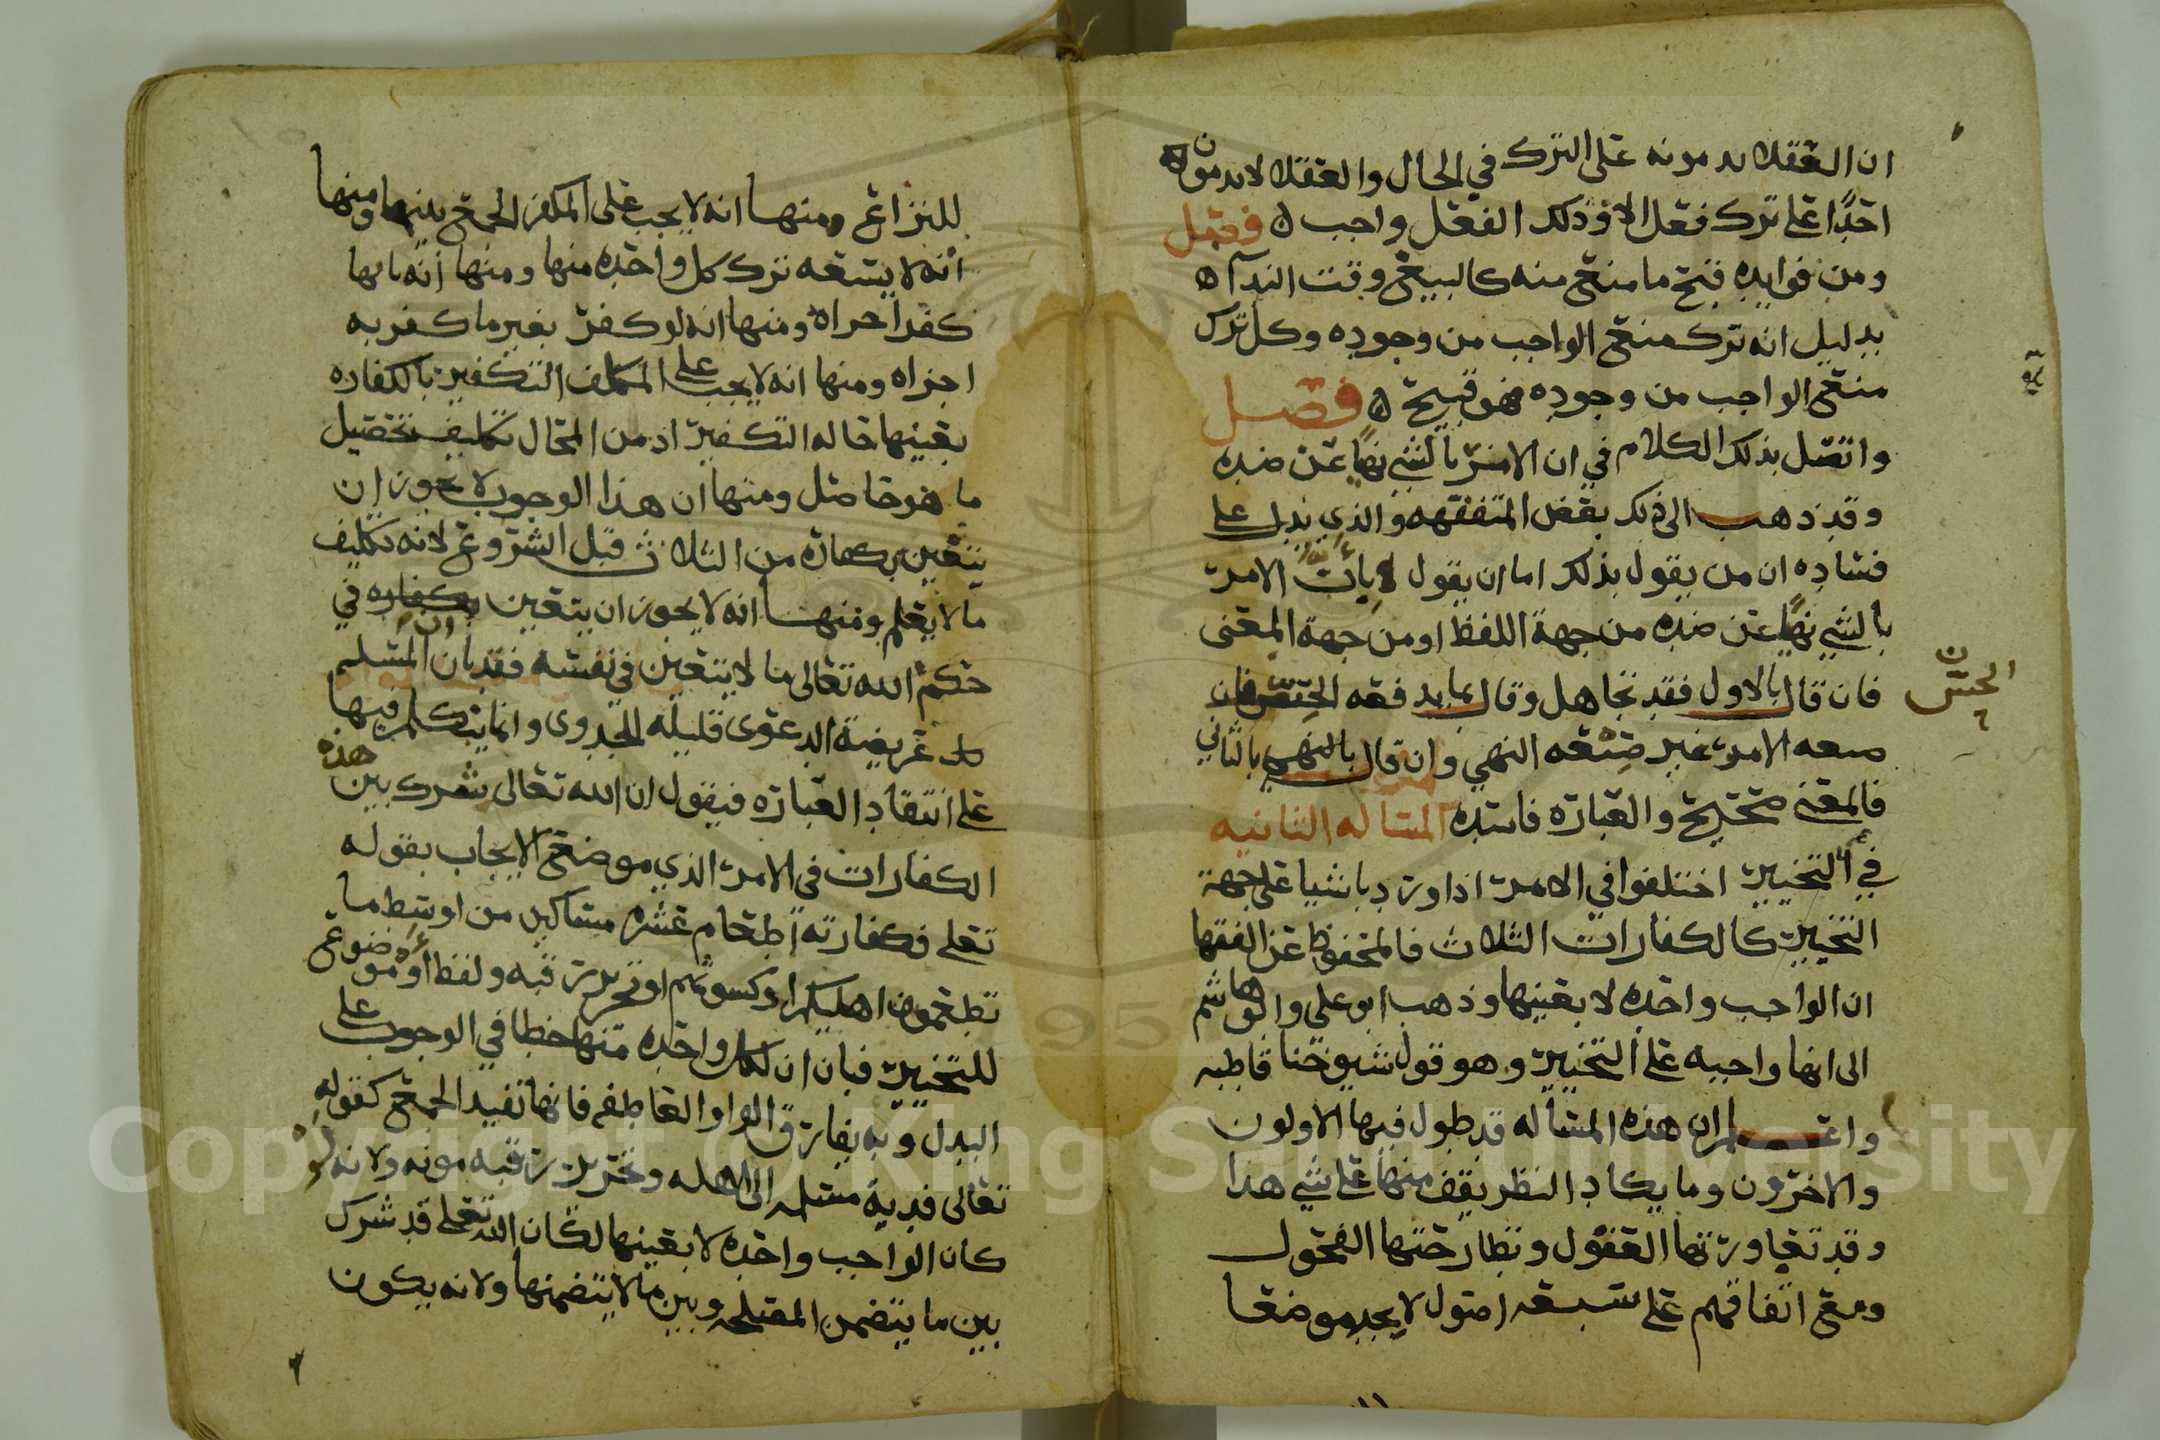 ان العقلا يذمونه على الترك في الحال والعقلا لا يذمون
احدًا على ترك فعل الا وذلك الفعل واجب ه فصل
ومن فوايده قبح ما منع منه كالبيع وقت الندآ ه
بدليل انه ترك منع الواجب من وجوده وكل ترك
منع الواجب من وجوده فهو قبيح ه فصل
واتصل بذلك الكلام في ان الامر بالشي نهيًا عن ضده
وقد ذهب الى ذلك بعض المتفقهه والذي يدل على
فساده ان من يقول بذلك اما ان يقول بأن الامر
بالشي نهيًا عن ضده من جهة اللفظ او من جهة المعنى
فان قال بالاول فقد تجاهل وقال بما يدفعه الحس فان
الحس
ن
صيغه الامر غير صيغه النهي وان قال بالنهي بالثاني
فالمعنى صحيح والعبارة فاسده المسأله الثانيه
في التخيير اختلفوا في الامر اذا ورد باشيا على جهة
التخيير كالكفارات الثلاث فالمحفوظ عن الفقها
ان الواجب واحده لا بعينها وذهب ابو علي وابو هاشم
الى انها واجبه على التخيير وهو قول شيوخنا قاطبه
واعلم ان هذه المسأله قد طول فيها الاولون
والاخرون وما يكاد النظر يقف منها على شي هذا
وقد تعاورتها العقول وتطارحتها الفحول
ومع اتفاقهم على سبعه اصول لا يجد موضعا
للنزاع ومنها انه لا يجب على المكفر الجمع بينها ومنها
أنه لا يسعه ترك كل واحده منها ومنها أنه بايها
كفر اجزاه ومنها انه لو كفر بغير ما كفر به
اجزاه ومنها انه لا يجب على المكلف التكفير بالكفاره
بعينها حاله التكفير اذ من المحال تكليف تحصيل
ما هو حاصل ومنها ان هذا الوجوب لا يجوز ان
يتعين بكفارة من الثلاث قبل الشروع لانه تكليف
ما لا يعلم ومنها انه لا يجوز ان يتعين بكفاره في
حكم الله تعالى ما لا يتعين في نفسه فقد بان ان المسله
عريضة الدعوى قليله الجدوى وانما يتكلم فيها
على انتقاد العبارة فيقول ان الله تعالى شرك بين هذه
الكفارات في الامر الذي موضع الايجاب بقوله
تعلى فكفارته اطعام عشره مساكين من اوسط ما
تطعمون اهليكم او كسوتهم او تحرير رقبه ولفظ أو موضوع
للتخيير فبان ان لكل واحده منها حظا في الوجوب على
البدل وبه يفارق الواو العاطفه فانها تفيد الجمع كقوله
تعالى فدية مسلمه الى اهله وتحرير رقبه مومنه ولانه لو
كان الواجب واحده لا بعينها لكان الله تعلى قد شرك
بين ما يتضمن المصلحه وبين ما لا يتضمنها ولانه يكون
Copyright © King Saud University
1957